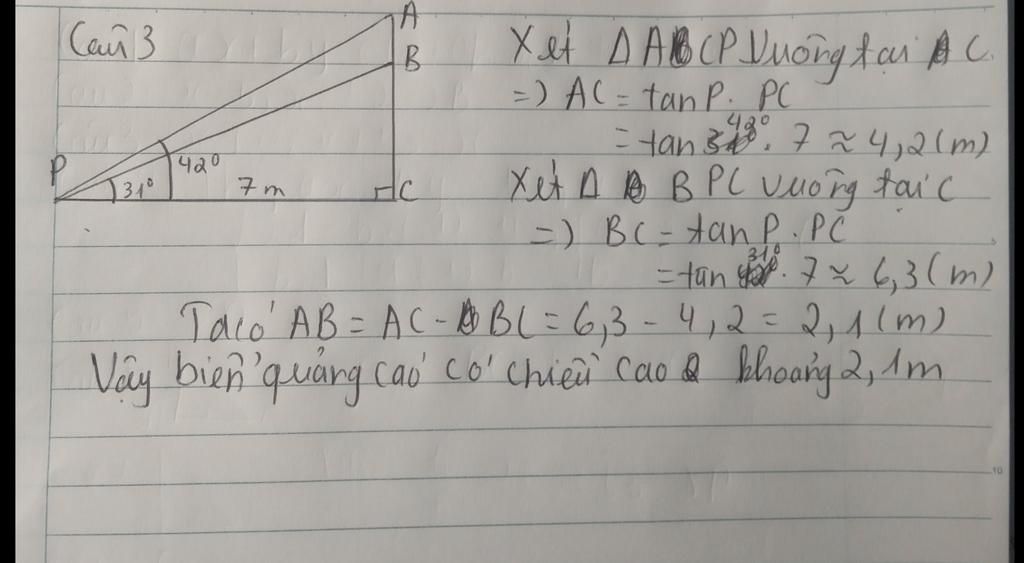 Câu 3
A
B
P
31°
42°
7 m
C
Xét Δ ACP vuông tại C.
=) AC = tan P. PC
= tan 42°. 7 ≈ 4,2 (m)
Xét Δ BPC vuông tại C
=) BC = tan P. PC
= tan 31°. 7 ≈ 6,3 (m)
Ta có AB = AC - BC = 6,3 - 4,2 = 2,1 (m)
Vậy biển quảng cáo có chiều cao khoảng 2,1m
10